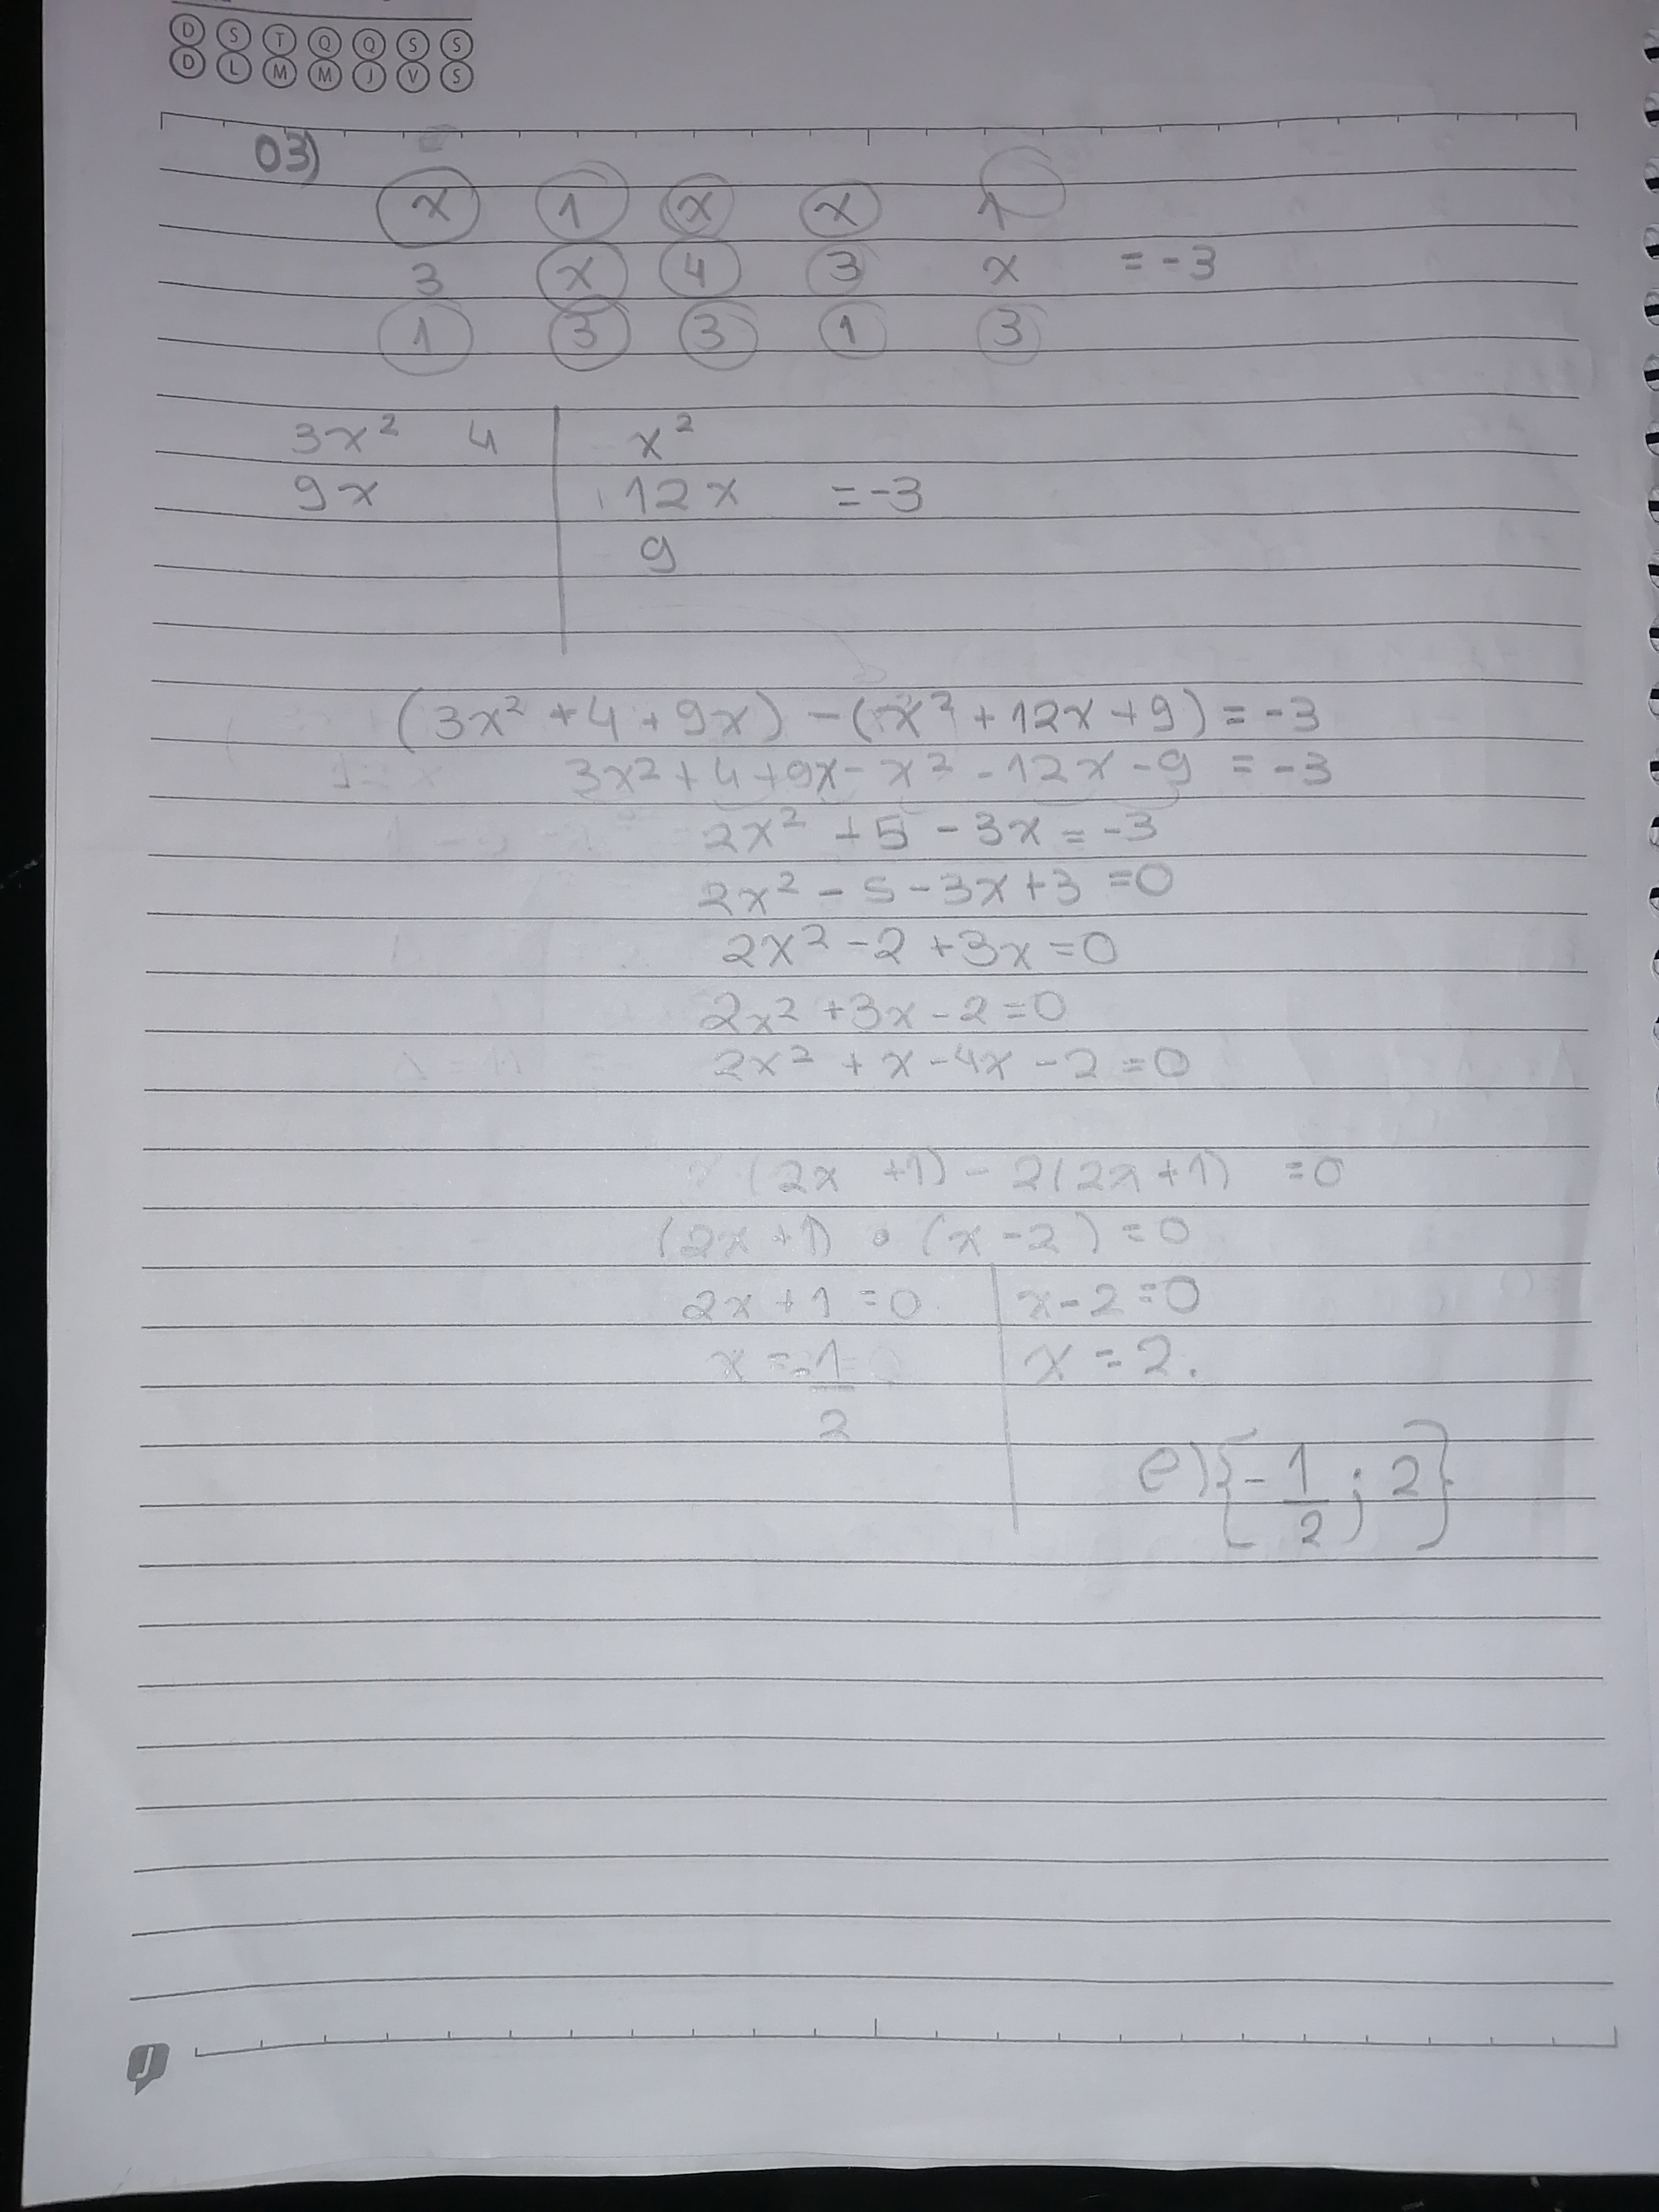 D S T Q Q S S
D L M M J V S
03)
x 1 x x 1
3 x 4 3 x = -3
1 3 3 1 3
3x² 4 x²
9x 12x = -3
9
(3x² + 4 + 9x) - (x² + 12x + 9) = -3
3x² + 4 + 9x - x² - 12x - 9 = -3
2x² + 5 - 3x = -3
2x² - 5 - 3x + 3 = 0
2x² - 2 + 3x = 0
2x² + 3x - 2 = 0
2x² + x - 4x - 2 = 0
(2x + 1) - 2(2x + 1) = 0
(2x + 1) • (x - 2) = 0
2x + 1 = 0 x - 2 = 0
x = -1/2 x = 2.
e) {-1/2 ; 2}
J